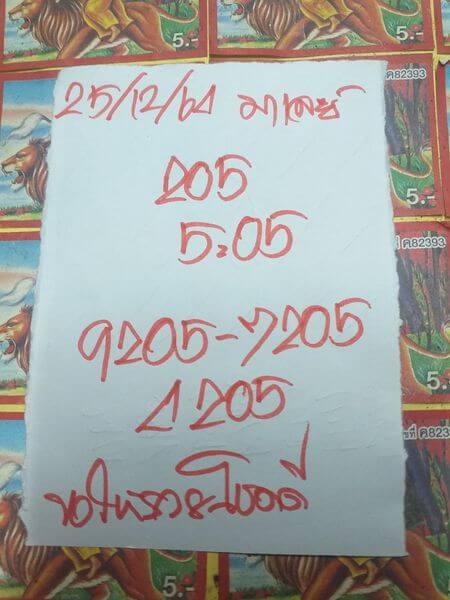 5.-
5.-
ค82393
25/12/64 มาเลย์
205
5:05
5.-
ที่ ค82393
9205-7205
5.-
4205
ขที่ ค823
ขอให้รวยโชคดี
5.-
5.-